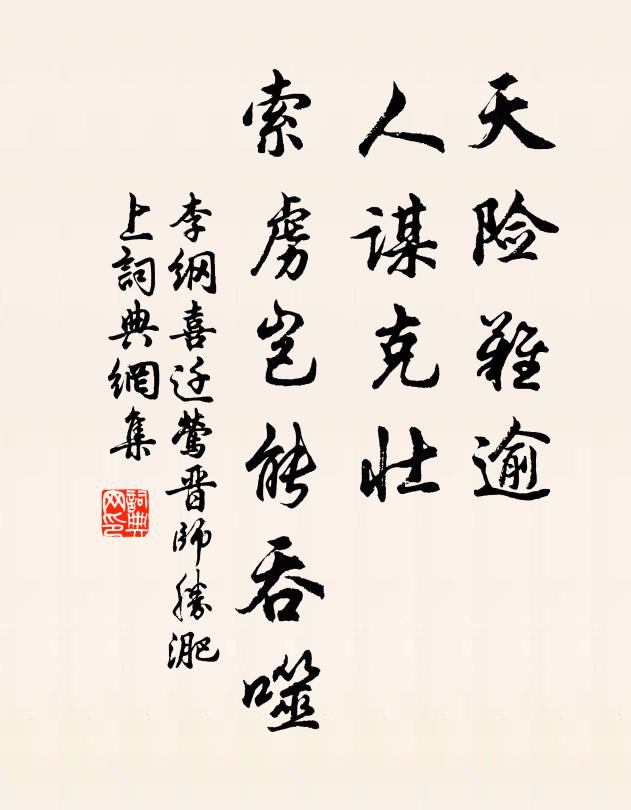 天险难逾
人谋克壮
索虏岂能吞噬
李纲喜迁莺晋师胜淝
上詞典網集
詞典网印